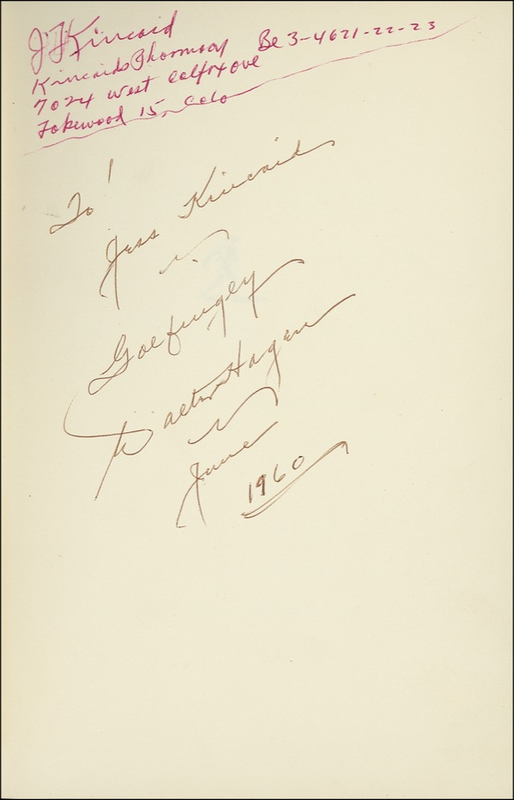 J J Kincaid
Kincaids Pharmacy Be 3-4621-22-23
7024 West Colfax ove
Lakewood 15, Colo
To!
Jess Kincaid
Golfingly
Walter Hagen
June
1960